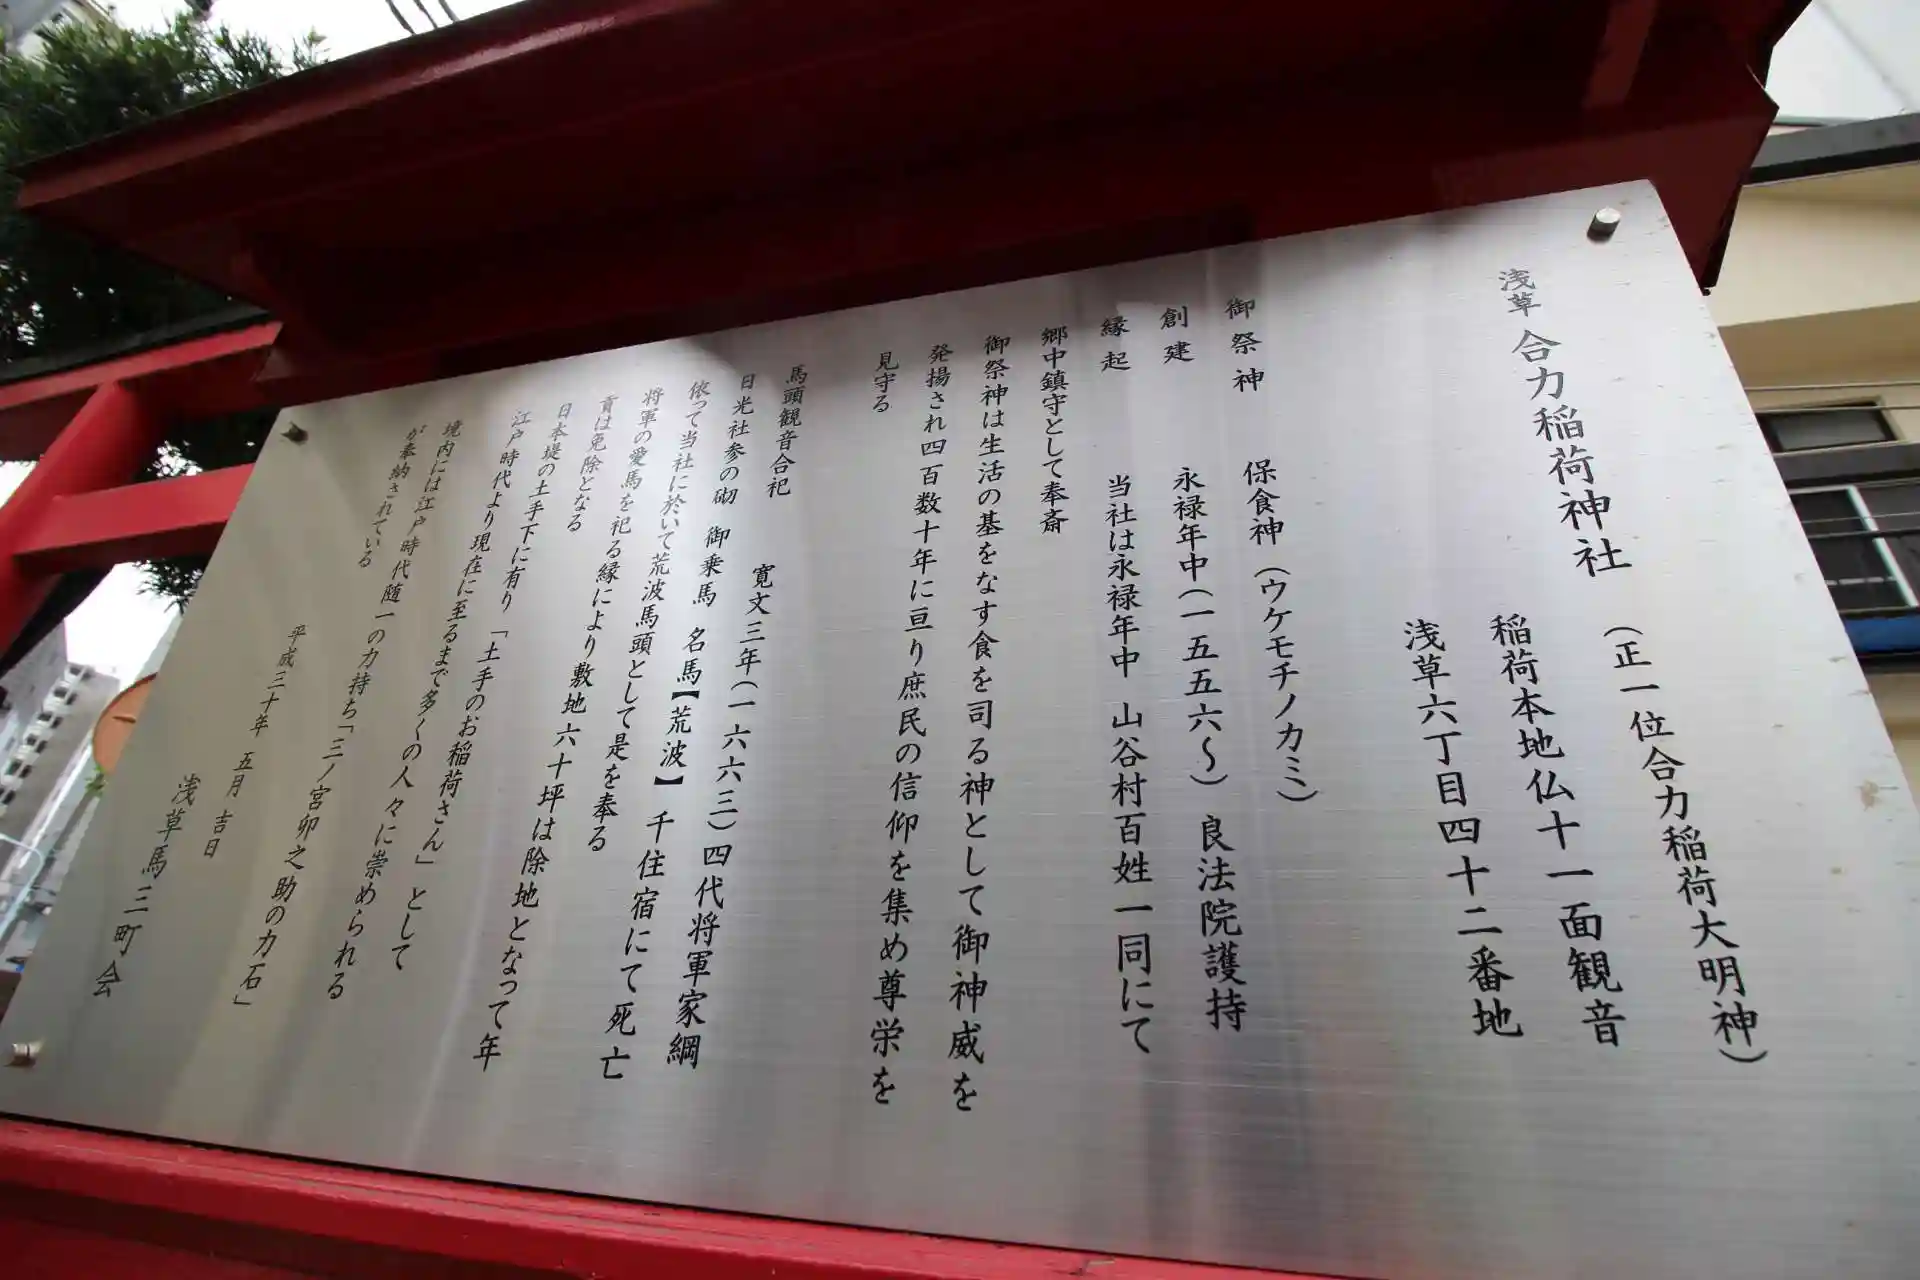 浅草 合力稲荷神社 (正一位合力稲荷大明神)
稲荷本地仏十一面観音
浅草六丁目四十二番地
御祭神 保食神(ウケモチノカミ)
創建 永禄年中(一五五六〜)良法院護持
縁起 当社は永禄年中 山谷村百姓一同にて
郷中鎮守として奉斎
御祭神は生活の基をなす食を司る神として御神威を
発揚され四百数十年に亘り庶民の信仰を集め尊栄を
見守る
馬頭観音合祀 寛文三年(一六六三)四代将軍家綱
日光社参の砌 御乗馬 名馬【荒波】千住宿にて死亡
依って当社に於いて荒波馬頭として是を奉る
将軍の愛馬を祀る縁により敷地六十坪は除地となって年
貢は免除となる
日本堤の土手下に有り「土手のお稲荷さん」として
江戸時代より現在に至るまで多くの人々に崇められる
境内には江戸時代随一の力持ち「三ノ宮卯之助の力石」
が奉納されている
平成三十年 五月 吉日
浅草馬三町会